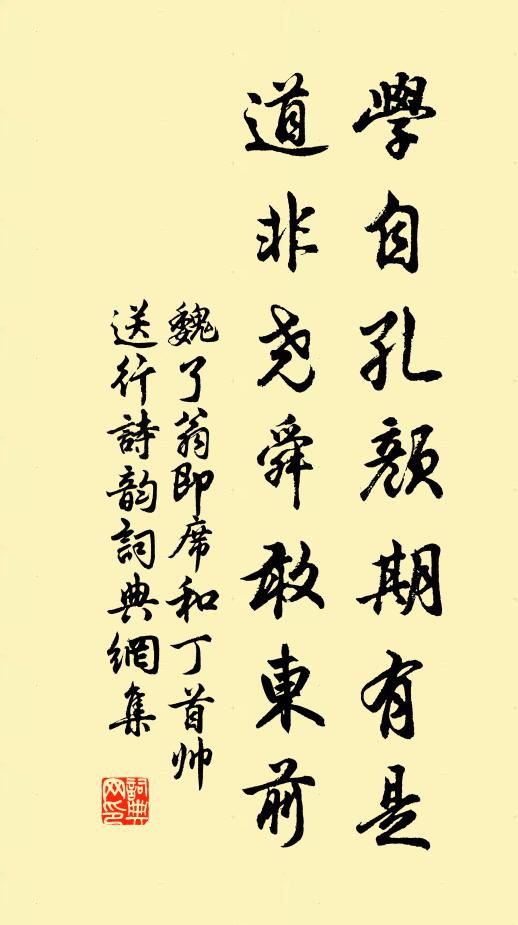 學自孔顔期有是
道非尧舜敢東前
魏了翁即席和丁首帅
送行詩韵詞典網集
詞典
网印